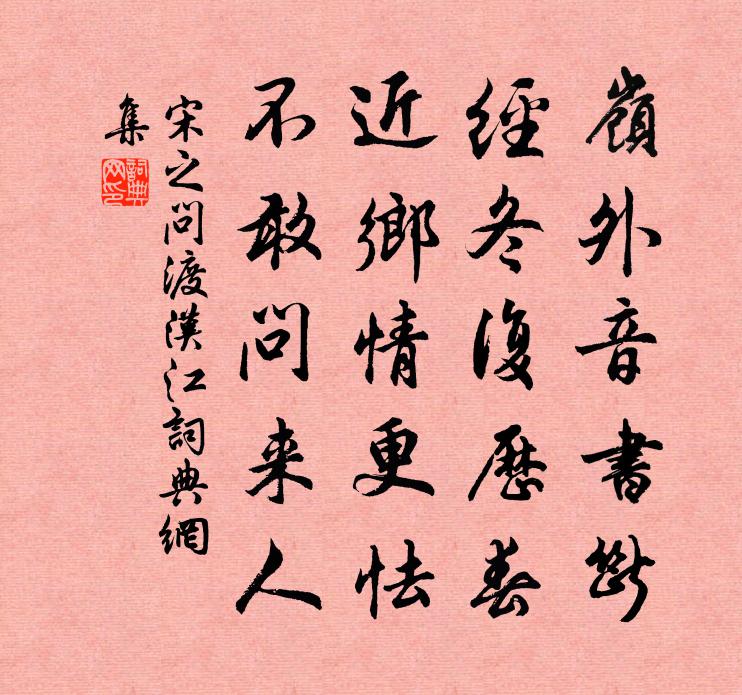 嶺外音書斷
經冬復歷春
近鄉情更怯
不敢問来人
宋之問渡漢江詞典網
集
詞典網印